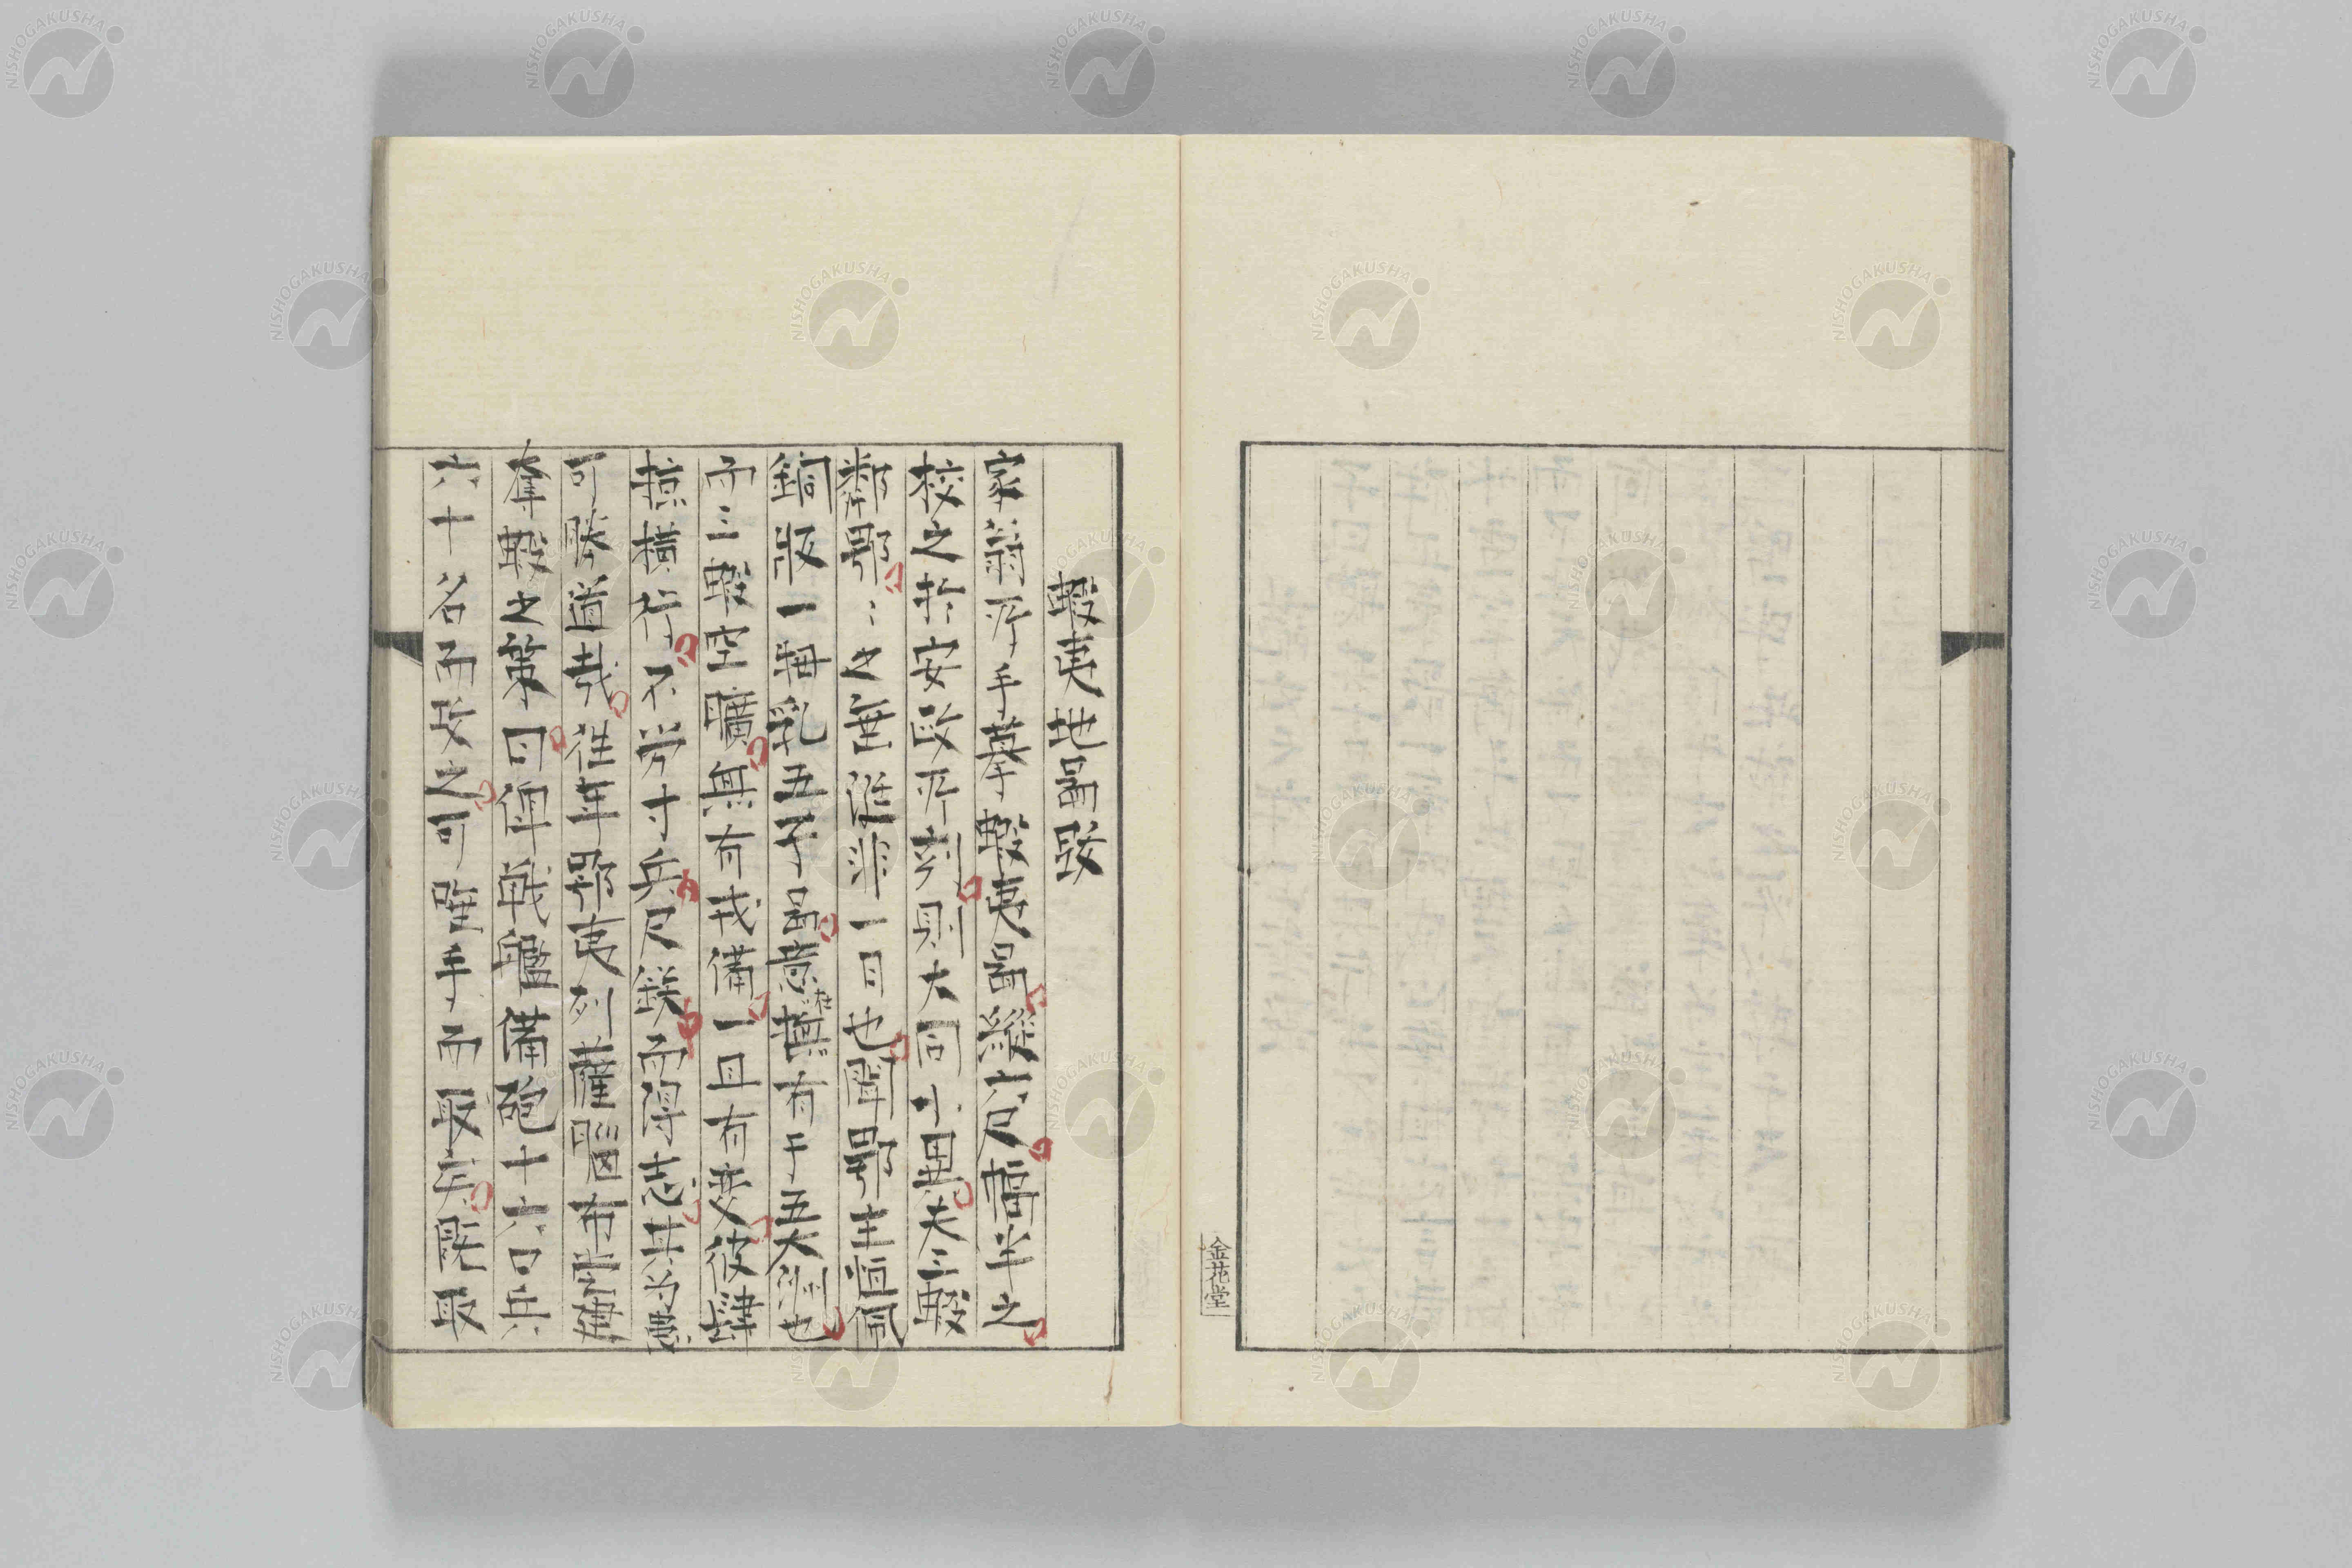 蝦夷地啚跋
家翁所手摹蝦夷啚縱六尺幅半之
校之於安政所刻則大同小異夫三蝦
鄰鄂ミ之垂涎非一日也聞鄂主嘗佩
銅版一軸乳五子啚意蓋撗有于吾大洲也
而三蝦空曠無有我備一旦有変彼肆
撗行不労寸兵尺鉄而得志其為患
可勝道哉往年鄂夷列薩脳布嘗建
奪蝦之策曰俾戦艦備砲十六口兵
六十名而攻之可唾手而取矣既取
金花堂
NISHOGAKUSHA